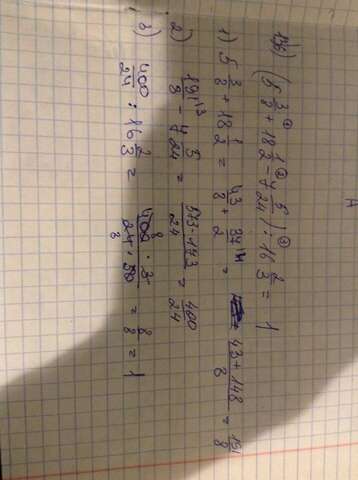 (5 3/8 + 18 1/2 - 7 5/24) : 16 2/3 = 1
1) 5 3/8 + 18 1/2 = 43/8 + 37/2 = 43+148/8 = 191/8
2) 191/8 - 7 5/24 = 573-173/24 = 400/24
3) 400/24 : 16 2/3 = 400·3/24·50 = 8/8 = 1